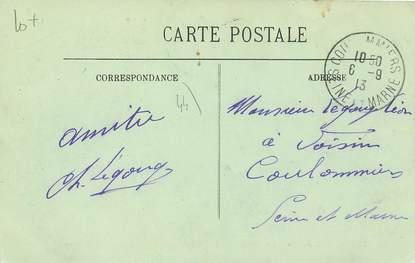 lot
CARTE POSTALE
CORRESPONDANCE
ADRESSE
COULOMMIERS
10 50
6 - 9
13
SEINE ET MARNE
44
amitié
Ch. Legoug
Monsieur Legoug Léon
à Voisin
Coulommiers
Seine et Marne